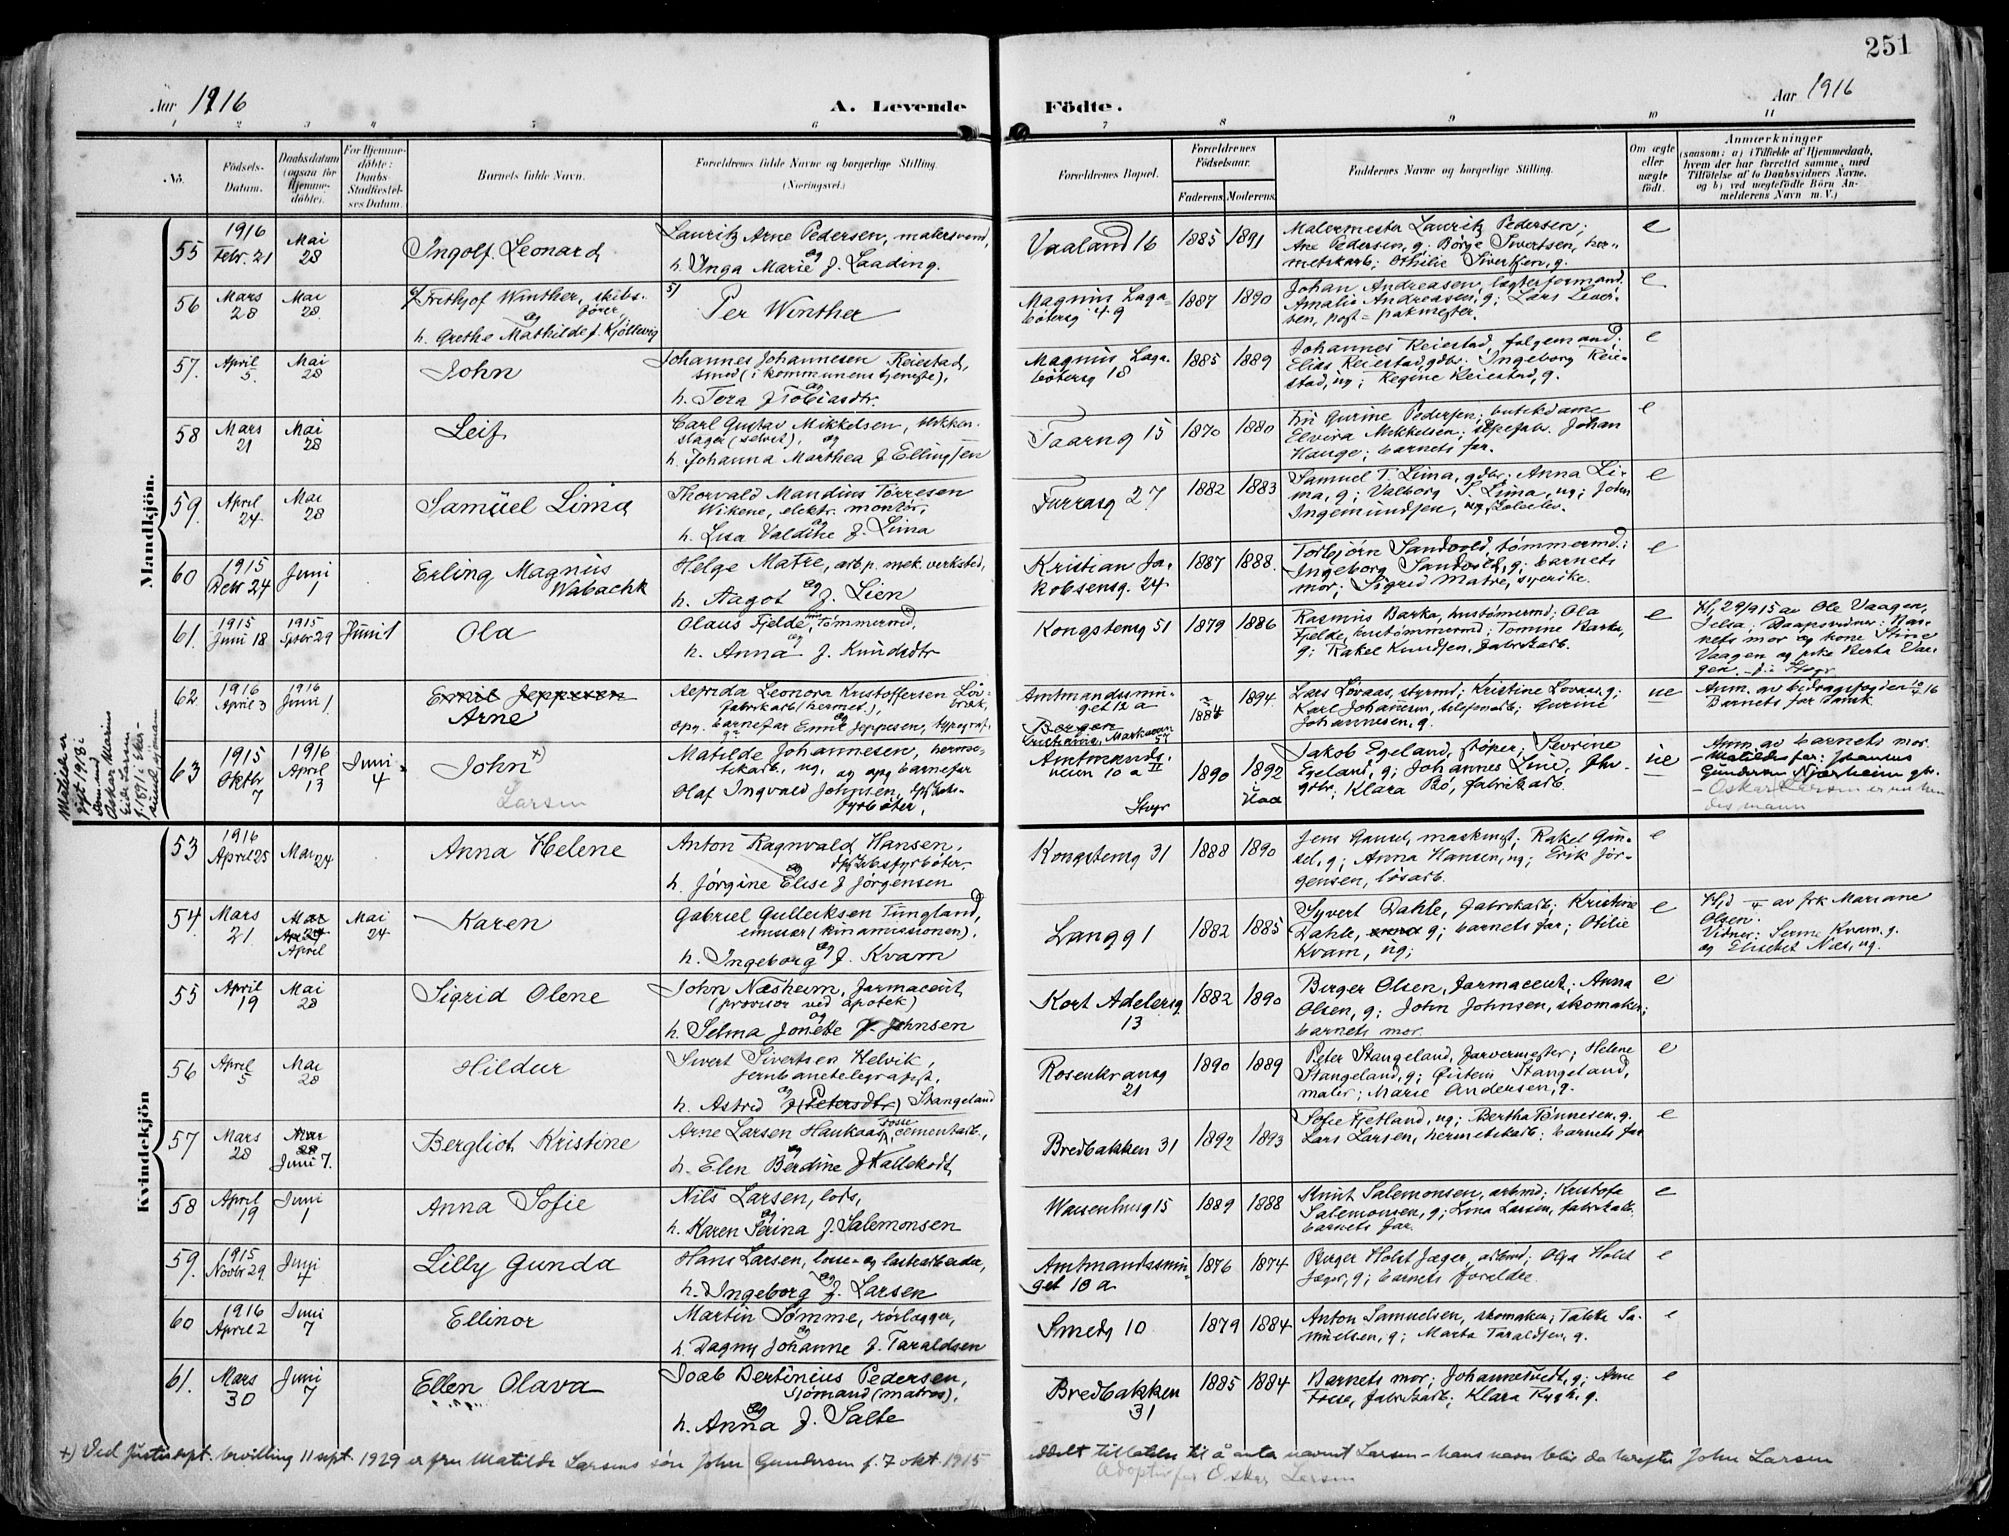 251
Aar 1916
A. Levende
Födte.
Aar 1916
1 2 3 4 5 6 7 8 9 10 11
No.
Födsels-
Datum.
Daabsdatum
(ogsaa for
Hjemme-
döbte).
For Hjemme-
döbte:
Daabs-
Stadfæstel-
ses Datum.
Barnets fulde Navn.
Forældrenes fulde Navne og borgerlige Stilling.
(Næringsvei.)
Forældrenes Bopæl.
Forældrenes
Födselsaar.
Faderens.
Moderens.
Faddernes Navne og borgerlige Stilling.
Om ægte
eller
uægte
födt.
Anmærkninger
(saasom: a) i Tilfælde af Hjemmedaab,
hvem der har forrettet samme, med
Tilföielse af to Daabsvidners Navne,
og b) ved uægtefödte Börn An-
melderens Navn m. V.)
Mandkjön.
55
1916
Febr. 21
Mai
28
Ingolf Leonard
Lauritz Arne Pedersen, malersvend,
og
h. Inga Marie f. Laading.
Vaaland 16
1885
1891
Malermester Lauritz Pedersen;
Ane Pedersen, g; Börge Sivertsen, her-
metikarb; Othilie Sivertsen, g.
e
56
Mars
28
Mai
28
Frithjof Winther, skibs-
fører,
og
h. Grethe Mathilde f. Kjöllevig
Per Winther
Magnus Laga-
bötersg 49
1887
1890
Johan Andreasen, lagterformand;
Amalie Andreasen, g; Lars Iver-
sen, post=pakmester.
e
57.
April
5.
Mai
28
John
Johannes Johannesen Reiestad,
smed (i kommunens tjeneste),
og
h. Tora f Tobiasdtr.
Magnus Laga-
bötersg 18
1885
1889
Johannes Reiestad, følgemand;
Elias Reiestad, gdbr. Ingeborg Reie-
stad, ug; Regine Reiestad, g.
e
58
Mars
21
Mai
28
Leif
Carl Gustav Mikkelsen, blikken-
slager (selvst), og
h. Johanna Marthea f Ellingsen
Taarng 15
1870
1880
Fru Gurine Pedersen; butikdame
Elvira Mikkelsen; sepefabr. Johan
Hauge; barnets far.
e
59.
April
24.
Mai
28
Samuel Lima
Thorvald Mandius Tørresen
Wikene, elektr. montör,
og
h. Lisa Valdine f. Lima
Furrasg 27
1882
1883
Samuel T. Lima, gdbr; Anna Li-
ma, g; Valborg S. Lima, ug; John
Ingemundsen, ug,
e
60
1915
Debr 24
Juni
1
Erling Magnus
Wabachk
Helge Matre, arb. p. mek. verksted,
og
h. Aagot f. Lien
Kristian Ja-
kobsensg. 24
1887
1888
Torbjørn Sandvold, tømmermd.;
Ingeborg Sandvold, g; barnets
mor; Sigrid Matre, syerske.
e
61.
1915
Juni 18
1915
Septbr 29
Juni 1
Ola
Olaus Fjelde, hustømmermd,
og
h. Anna f. Knudsdtr
Kongstensg 51
1879
1886
Rasmus Barka, hustømermd; Ola
Fjelde, hustømmermd; Tomine Barka,
g; Rakel Knudsen, fabrikarb.
e
Hj, 29/9 15 av Ole Vaagen,
Jelsa. Daapsvidner: Bar-
nets mor og kone Stine
Vaagen og pike Berta Vaa-
gen
62
1916
April 3
1916
Juni 1.
Emil Jeppesen
Arne
Alfrida Leonora Kristoffersen Löv-
bræk,
fabrikarb (hermet),
og
opg. barnefar Emil Jeppesen, typograf,
Amtmandssvin-
get 12 a
Bergen
Kristiania, Markveien 57
1884
1894
Lars Lövaas, styrmd; Kristine Lovaas, g;
Karl Johannesen, telefonarb; Gurine
Johannesen, g.
ue
Anm. av bidragsfogden 10/4 16
Barnets far dansk
63
1915
Oktbr
7
1916
April
13
Juni
4
John +)
Larsen
Matilde Johannesen, herme-
tikarb, ug, og opg barnefar
Olaf Ingvald Johnsen,
fyrböter,
Amtmands-
veien 10 a II
Stvgr
1890
1892
Jakob Egeland, støper; Sevrine
Egeland, g; Johannes Line,
gdbr; Klara Bö, fabrikarb.
ue
Anm. av barnets mor.
– Matildes far: Johannes
Gundersen Njærheim gbr.
– Oskar Larsen er en hen
des mann
Matilde er
sept 1918 i
Oskar Marius
Larsen
Kvindekjön
53
1916
April 25
Mai 24
Anna Helene
Anton Ragnvald Hansen,
dpskibsfyrböter,
og
h. Jörgine Elise f Jörgensen
Kongstensg 31
1888
1890
Jens Gausel, maskinist; Rakel Gau-
sel, g; Anna Hansen, ug; Erik Jör-
gensen, løsarb.
e
54.
Mars
21.
Mai
24
April
Mai
24
Karen
Gabriel Gulleiksen Tungland,
emissær (kinamissionen),
og
h. Ingeborg f. Kvam
Langg 1
1882
1885
Syvert Dahle, fabrikarb; Kristine
Dahle, g; barnets far; Otilie
Kvam, ug;
e
Hjd av frk Mariane
Olsen.
Vidner: Serine Kvam, g.
og Elisabet Næs, ug.
55
April
19
Mai
28
Sigrid Olene
John Næsheim, farmaceut,
(provisor ved apotek)
og
h. Selma Jonette f. Johnsen
Kort Adelersg
13
1882
1890
Birger Olsen, farmaceut; Anna
Olsen, g; John Johnsen, skomaker;
barnets mor.
e
56
April
5
Mai
28
Hildur
Sivert Sivertsen Helvik,
jernbanetelegrafist,
og
h. Astrid f (Petersdtr) Stangeland
Rosenkransg
21
1890
1889
Peter Stangeland, farvermester; Helene
Stangeland, g; Øistein Stangeland,
maler; Marie Andersen, g.
e
57
Mars
28
Mai
28
Juni 7.
Bergliot Kristine
Arne Larsen Haukaas, Fosse, cementarb.,
og
h. Elen Berdine f Kallekodt
Bredbakken 31
1892
1893
Sofie Fjetland, ug; Bertha Tønnesen, g.
Lars Larsen, hermetikarb; barnets far
e
58
April
19
Juni
1
Anna Sofie
Nils Larsen, lods,
og
h. Karen Serina f. Salemonsen
Waisenhusg 15
1889
1888
Knut Salemonsen, arbmd; Kristofa
Salemonsen, g; Lina Larsen, fabrikarb.
barnets far.
e
59.
1915
Novbr 29
Juni
4
Lilly Gunda
Hans Larsen, losse- og lastearbeider,
og
h. Ingeborg f. Larsen
Amtmandssvin-
get 10 a
1876
1874
Birger Holst Jæger, arbmd; Olga Holst
Jæger, g; barnets forældre.
e
60
1916
April 2
Juni
7
Ellinor
Martin Sömme, rörlægger,
og
h. Dagny Johanne f. Taraldsen
Smedg 10
1879
1884
Anton Samuelsen, skomaker; Takka Sa-
muelsen, g; Marta Taraldsen, g.
e
61.
Mars
30
Juni
7
Ellen Olava
Joab Bertinius Pedersen,
sjömand (matros),
og
h. Anna f. Salte
Bredbakken
31
1885
1884
Barnets mor; Johanne Tvedt, g; Arne
Fosse, fabrikarb; Klara Rygh, g.
e
+) Ved Justisdept. bevilling 11 sept. 1929 er fru Matilde Larsens sön John Gundersen f. 7 okt. 1915
meddelt tillatelse til å anta navnet Larsen – hans navn blir da herefter John Larsen
Adoptivfar Oskar Larsen